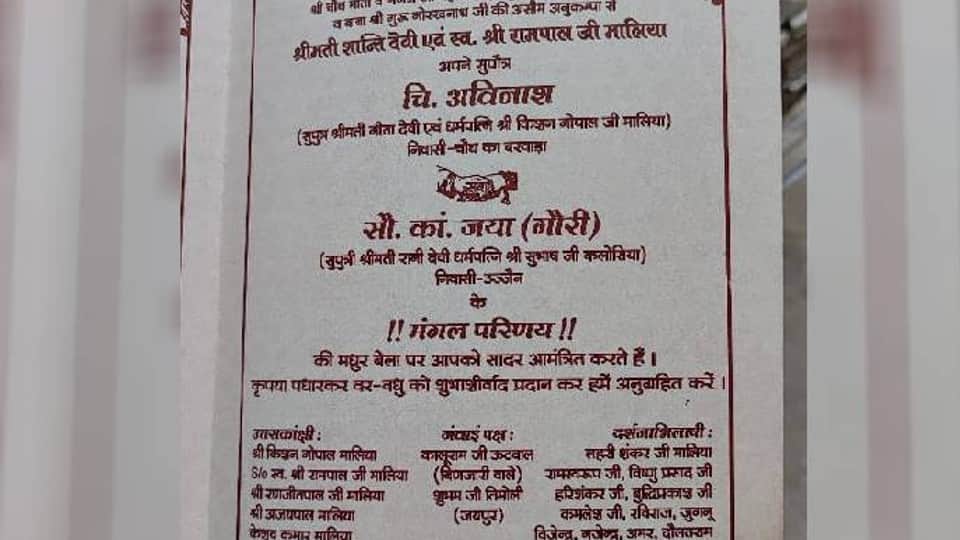 श्री चौथ माता व
व बाबा श्री गुरू गोरखनाथ जी की असीम अनुकम्पा से
श्रीमती शान्ति देवी एवं स्व. श्री रामपाल जी मालिया
अपने सुपौत्र
चि. अविनाश
(सुपुत्र श्रीमती गीता देवी एवं धर्मपत्नि श्री किशन गोपाल जी मालिया)
निवासी-चौथ का बरवाड़ा
सौ. कां. जया (गौरी)
(सुपुत्री श्रीमती रानी देवी धर्मपत्नि श्री सुभाष जी कलोसिया)
निवासी-उज्जैन
के
!! मंगल परिणय !!
की मधुर बेला पर आपको सादर आमंत्रित करते हैं।
कृपया पधारकर वर-वधु को शुभाशीर्वाद प्रदान कर हमें अनुग्रहित करें।
उत्तरकांक्षी : जंवाई पक्ष : दर्शनाभिलाषी :
श्री किशन गोपाल मालिया कालूराम जी ऊटवाल लहरी शंकर जी मालिया
S/o स्व. श्री रामपाल जी मालिया (बिणजारी वाले) रामस्वरूप जी, विष्णु प्रसाद जी
श्री रणजीतपाल जी मालिया शुभम जी तिमोली हरिशंकर जी, बुद्धिप्रकाश जी
श्री अजयपाल मालिया (जयपुर) कमलेश जी, रविराज, जुगनू
केशव कुमार मालिया विजेन्द्र, गजेन्द्र, अमर, दौलतराम